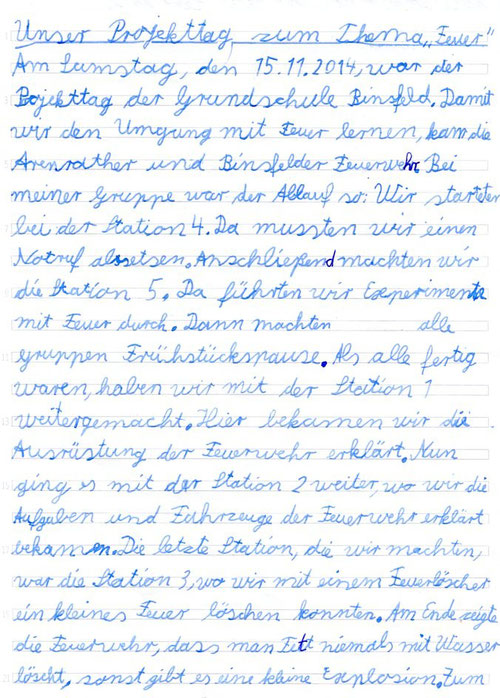 Unser Projekttag zum Thema „Feuer"
Am Samstag, den 15.11.2014, war der
Pojekttag der Grundschule Binsfeld. Damit
wir den Umgung mit Feuer lernen, kam die
Arenrather und Binsfelder Feuerwehr. Bei
meiner Gruppe war der Ablauf so: Wir starteten
bei der Station 4. Da mussten wir einen
Notruf absetsen. Anschließend machten wir
die Station 5. Da führten wir Experimente
mit Feuer durch. Dann machten alle
gruppen Frühstückspause. Als alle fertig
waren, haben wir mit der Station 1
weitergemacht. Hier bekamen wir die
Ausrüstung der Feuerwehr erklärt. Nun
ging es mit der Station 2 weiter, wo wir die
Aufgaben und Fahrzeuge der Feuerwehr erklärt
bekamen. Die letzte Station, die wir machten,
war die Station 3, wo wir mit einem Feuerlöscher
ein kleines Feuer löschen konnten. Am Ende zeigte
die Feuerwehr, dass man Fett niemals mit Wasser
löscht, sonst gibt es eine kleine Explosion. Zum